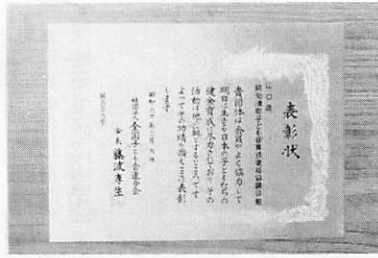 表彰状
山口県
貴団体は会員がよく協力して
明日に生きる日本の子どもたちの
健全育成に尽力されておりその
活動は他の範とするところです
よってその功績を讃えここに表彰
します
昭和六十年二月九日
社団法人 全国子ども会連合会
会長 藤波孝生